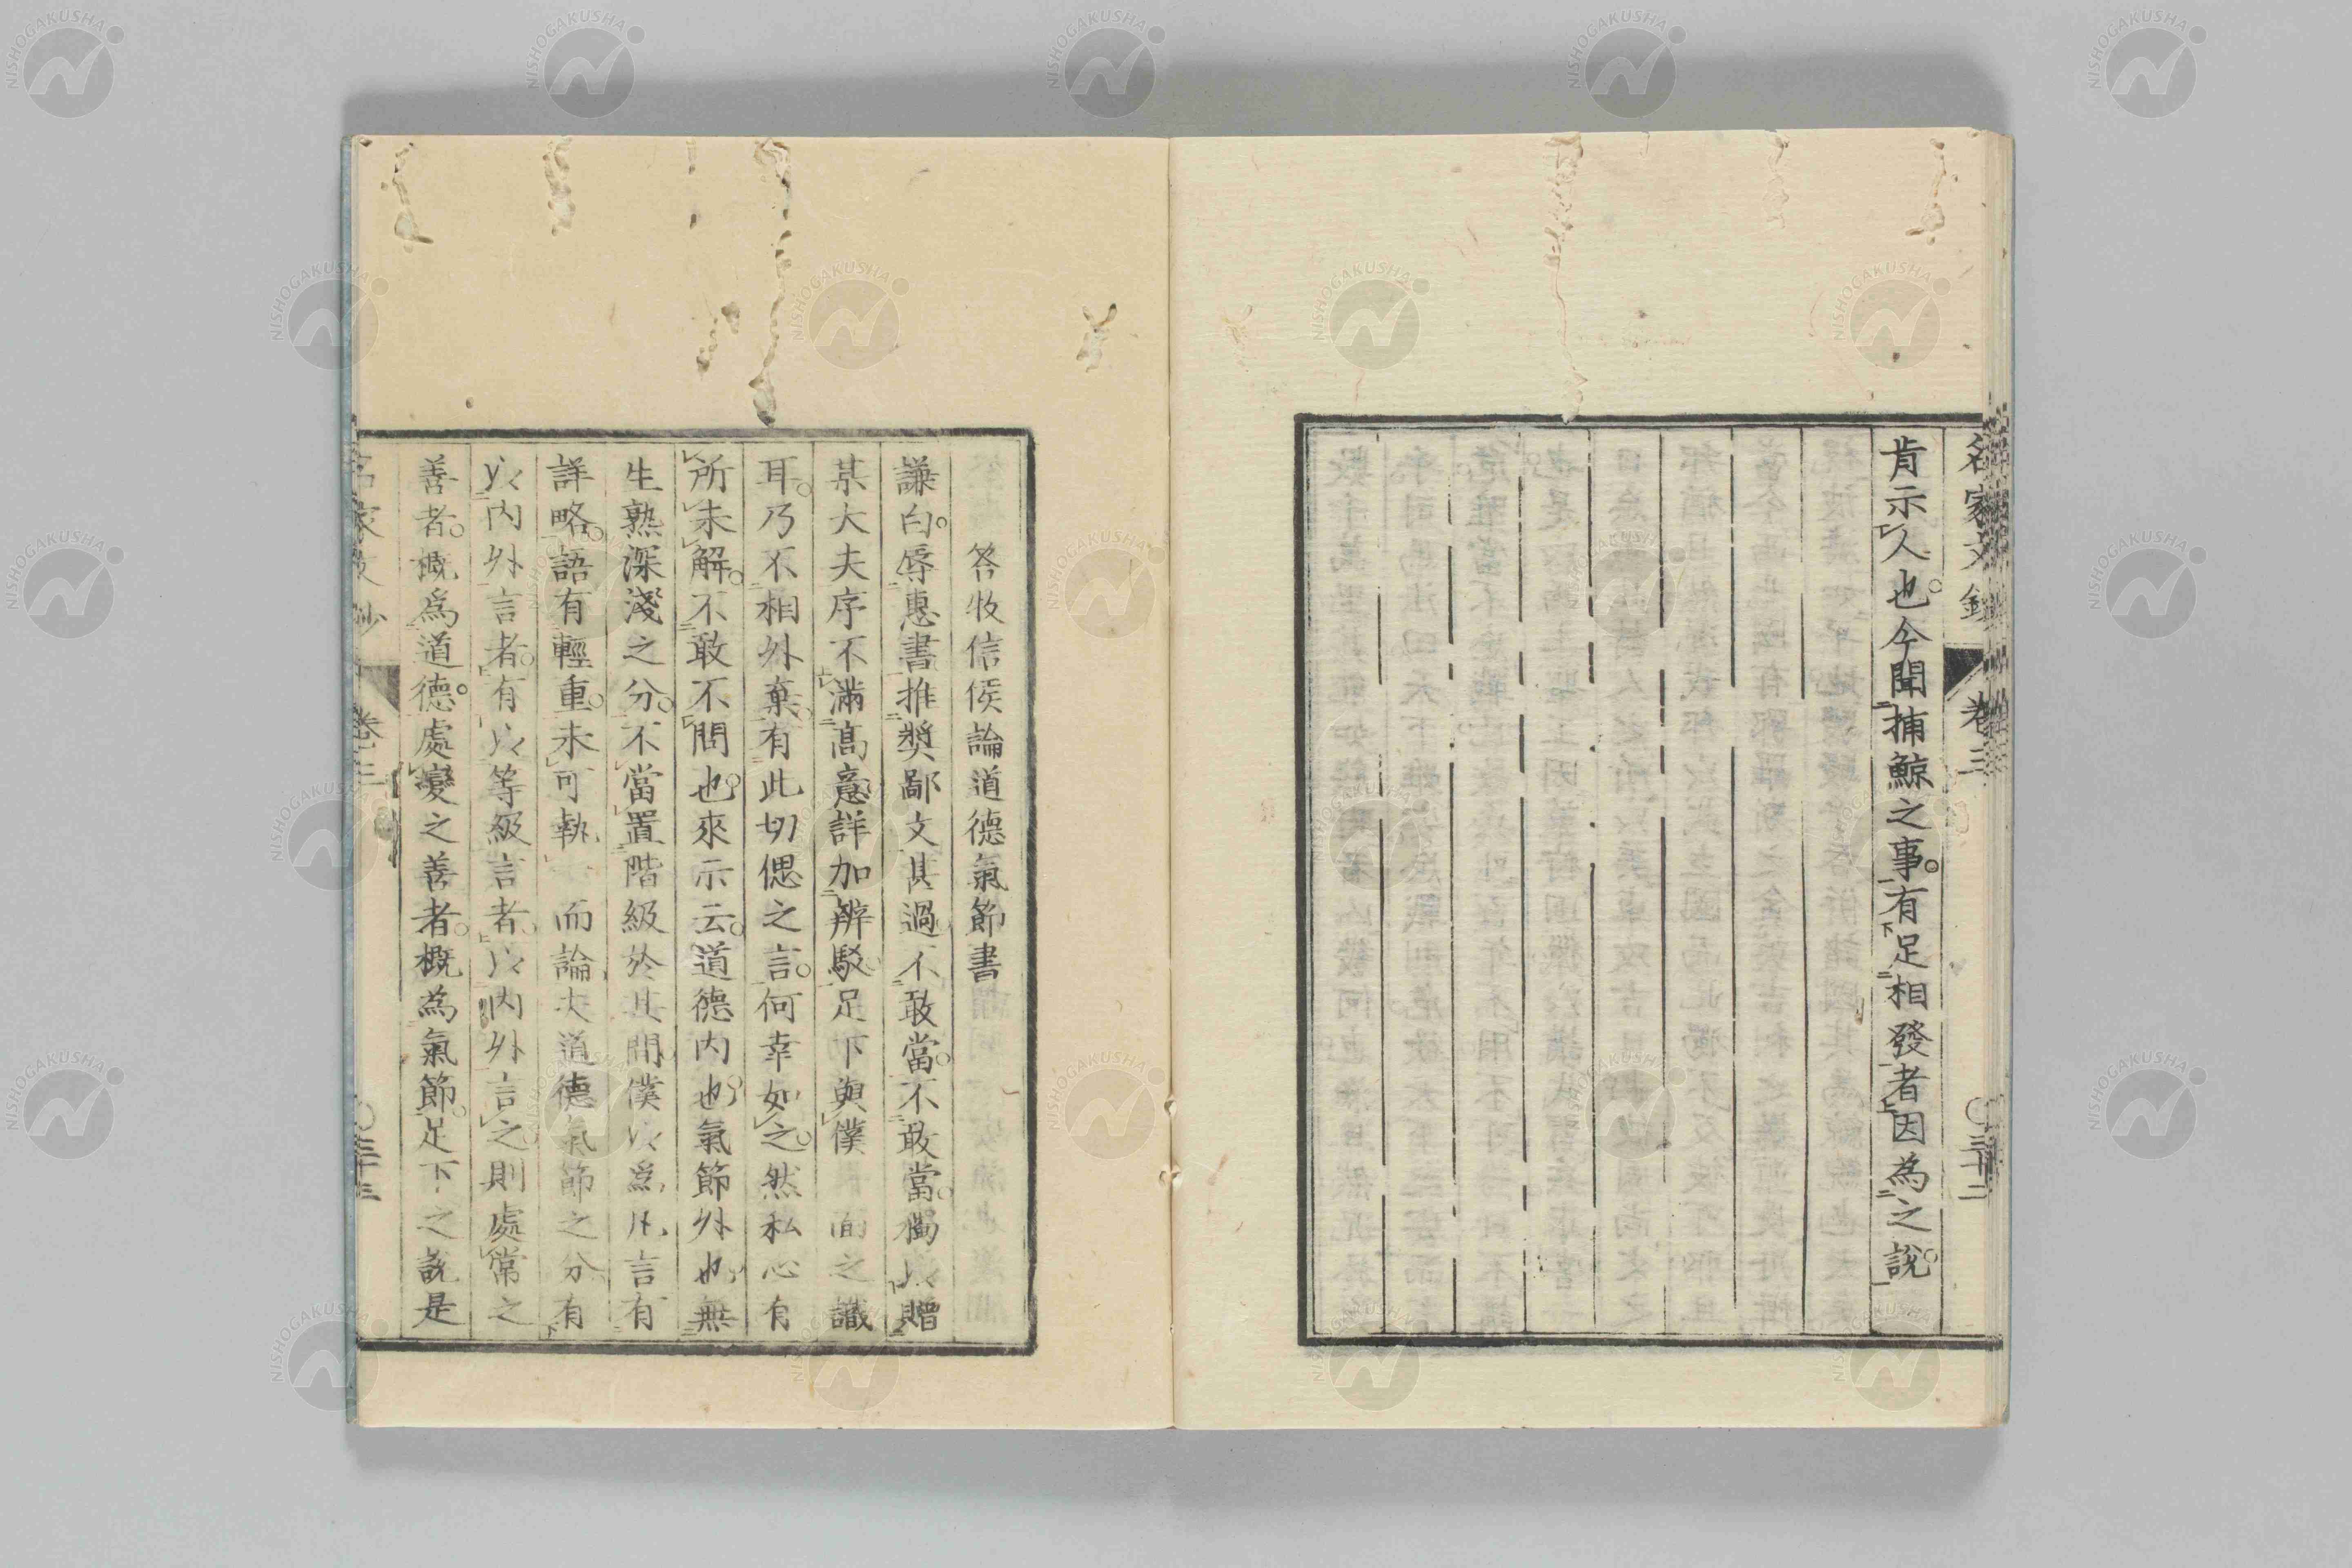 名家文鈔 卷三 〇三十二
肯示人也今聞捕鯨之事。有足相發者因為之說。
答牧信侯論道德氣節書
謙白。辱惠書推奬鄙文其過不敢當。不敢當。獨以贈
某大夫序不滿高意詳加辨駁足下與僕面之識
耳。乃不相外棄。有此切偲之言。何幸如之。然私心有
所未解。不敢不問也。來示云。道德内也。氣節外也。無
生熟深淺之分。不當置階級於其間僕以爲凡言有
詳略。語有輕重。未可執而論夫道德氣節之分有
以内外言者。有以等級言者。以内外言之則處常之
善者。概爲道德。處變之善者。概為氣節。足下之說是
名家文鈔 卷三 〇三十三
NISHOGAKUSHA